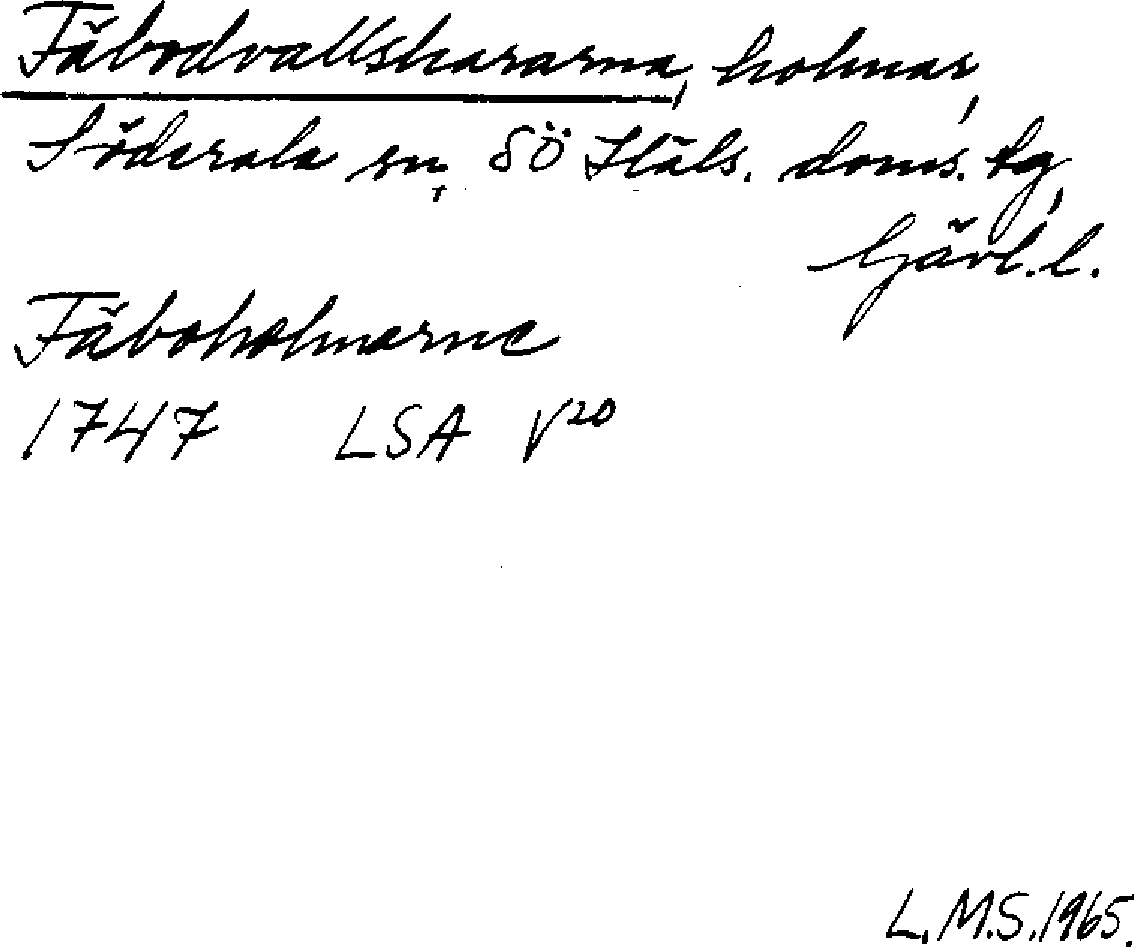 Fäbodvallshararna, holmar,
Söderala sn, SÖ Häls. doms. tg,
Gävl. l.
Fäboholmarne
1747 LSA V20
L.M.S. 1965.